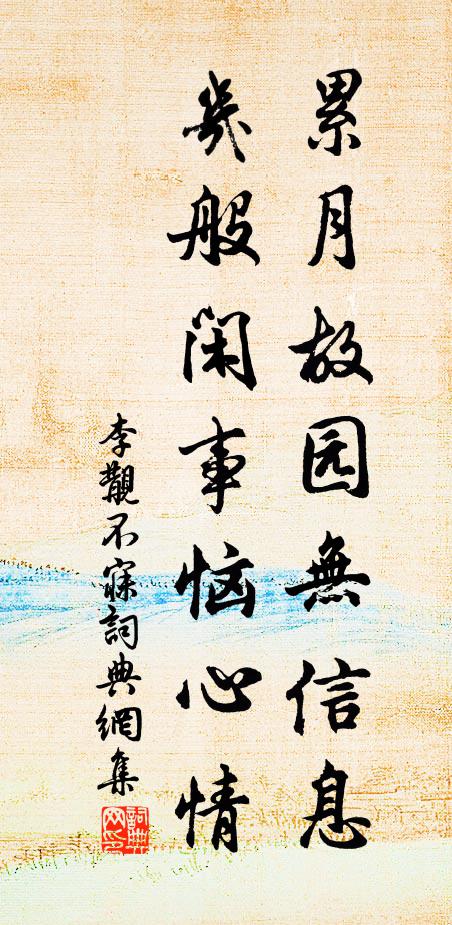 累月故园無信息
幾般闲事恼心情
李覯不寐詞典網集
詞典网印